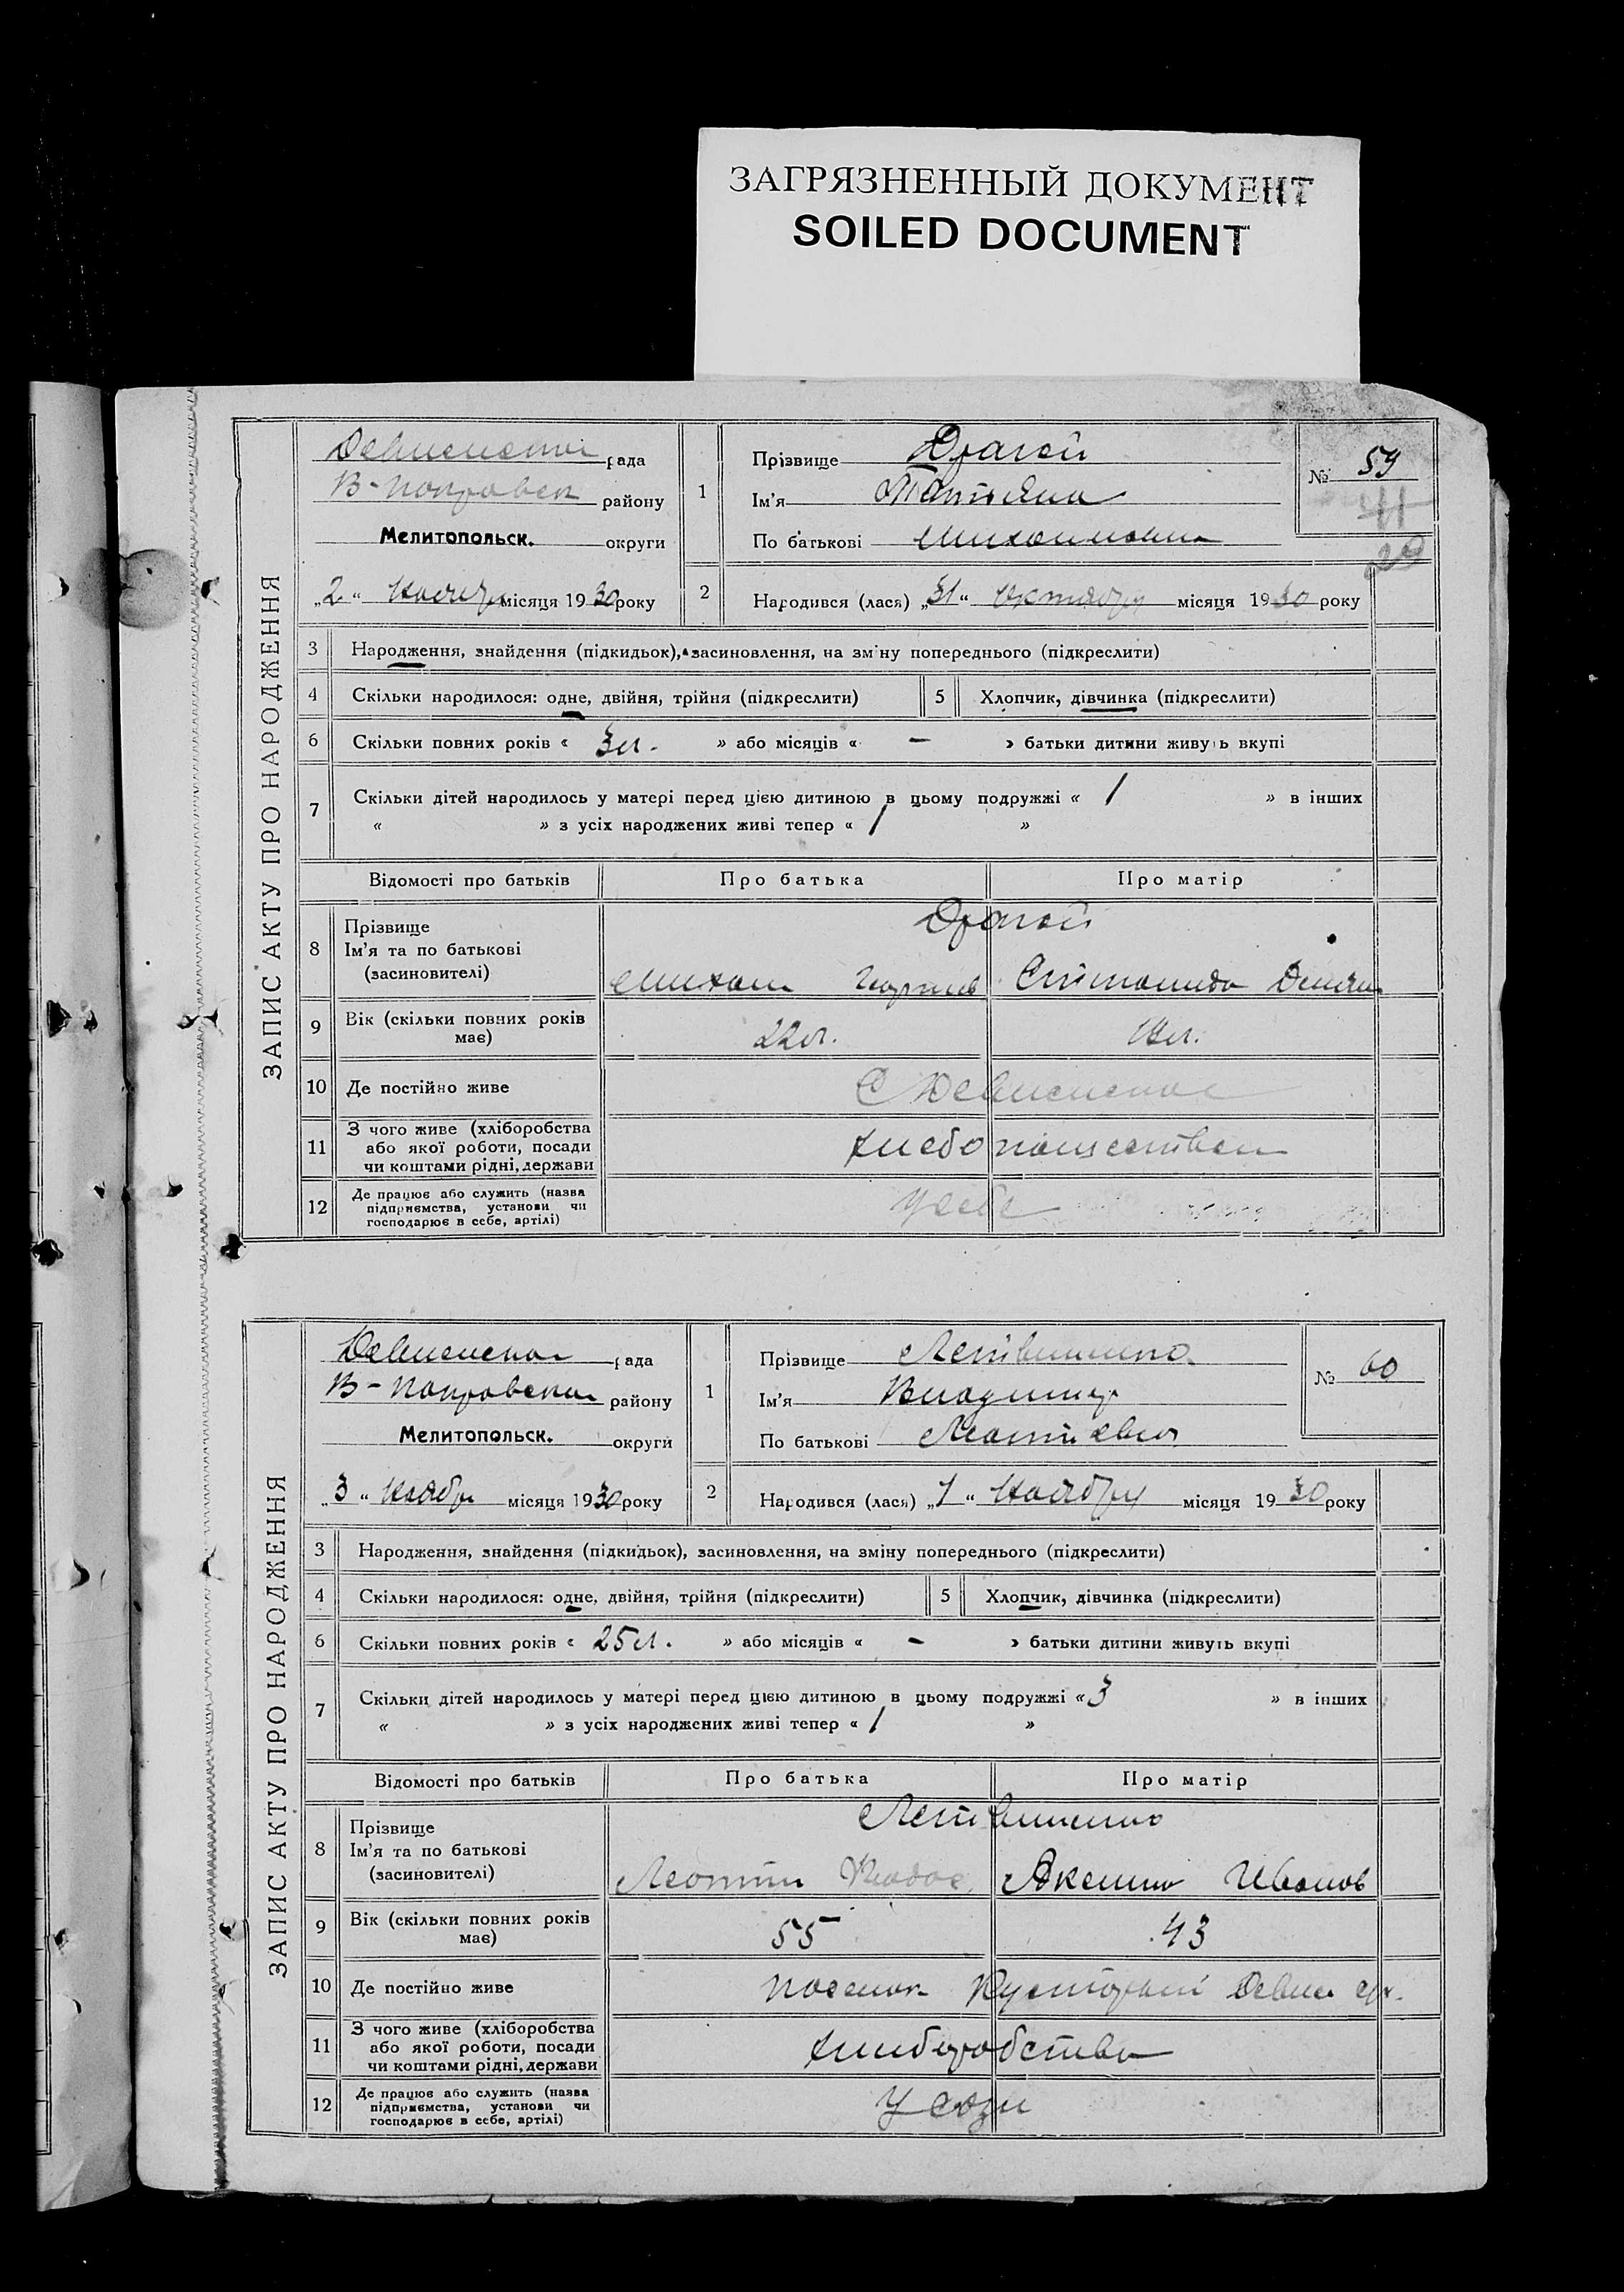 ЗАГРЯЗНЕННЫЙ ДОКУМЕНТ
SOILED DOCUMENT
ЗАПИС АКТУ ПРО НАРОДЖЕННЯ
рада
В-Покровск району
Мелитопольск. округи
„2“ Ноября місяця 1930 року
1
Прізвище Драгой
Ім'я Татьяна
По батькові Михайловна
№ 59
41
29
2 Народився (лася) „31“ Октября місяця 1930 року
3 Народження, знайдення (підкидьок), засиновлення, на зміну попереднього (підкреслити)
4 Скільки народилося: одне, двійня, трійня (підкреслити) 5 Хлопчик, дівчинка (підкреслити)
6 Скільки повних років « 3 л. » або місяців « - » батьки дитини живуть вкупі
7 Скільки дітей народилось у матері перед цією дитиною в цьому подружжі « 1 » в інших
« » з усіх народжених живі тепер « 1 »
Відомості про батьків Про батька Про матір
8 Прізвище
Ім'я та по батькові
(засиновителі)
Драгой
Михаил Георгиев
9 Вік (скільки повних років
має)
22 л. 19 л.
10 Де постійно живе
11 З чого живе (хліборобства
або якої роботи, посади
чи коштами рідні, держави
12 Де працює або служить (назва
підприємства, установи чи
господарює в себе, артілі)
У себе
ЗАПИС АКТУ ПРО НАРОДЖЕННЯ
рада
В-Покровская району
Мелитопольск. округи
„3“ Ноября місяця 1930 року
1
Прізвище
Ім'я Владимир
По батькові
№ 60
2 Народився (лася) „1“ Ноября місяця 1930 року
3 Народження, знайдення (підкидьок), засиновлення, на зміну попереднього (підкреслити)
4 Скільки народилося: одне, двійня, трійня (підкреслити) 5 Хлопчик, дівчинка (підкреслити)
6 Скільки повних років « 25 л. » або місяців « - » батьки дитини живуть вкупі
7 Скільки дітей народилось у матері перед цією дитиною в цьому подружжі « 3 » в інших
« » з усіх народжених живі тепер « 1 »
Відомості про батьків Про батька Про матір
8 Прізвище
Ім'я та по батькові
(засиновителі)
Иванов
9 Вік (скільки повних років
має)
55 43
10 Де постійно живе
поселок
11 З чого живе (хліборобства
або якої роботи, посади
чи коштами рідні, держави
12 Де працює або служить (назва
підприємства, установи чи
господарює в себе, артілі)